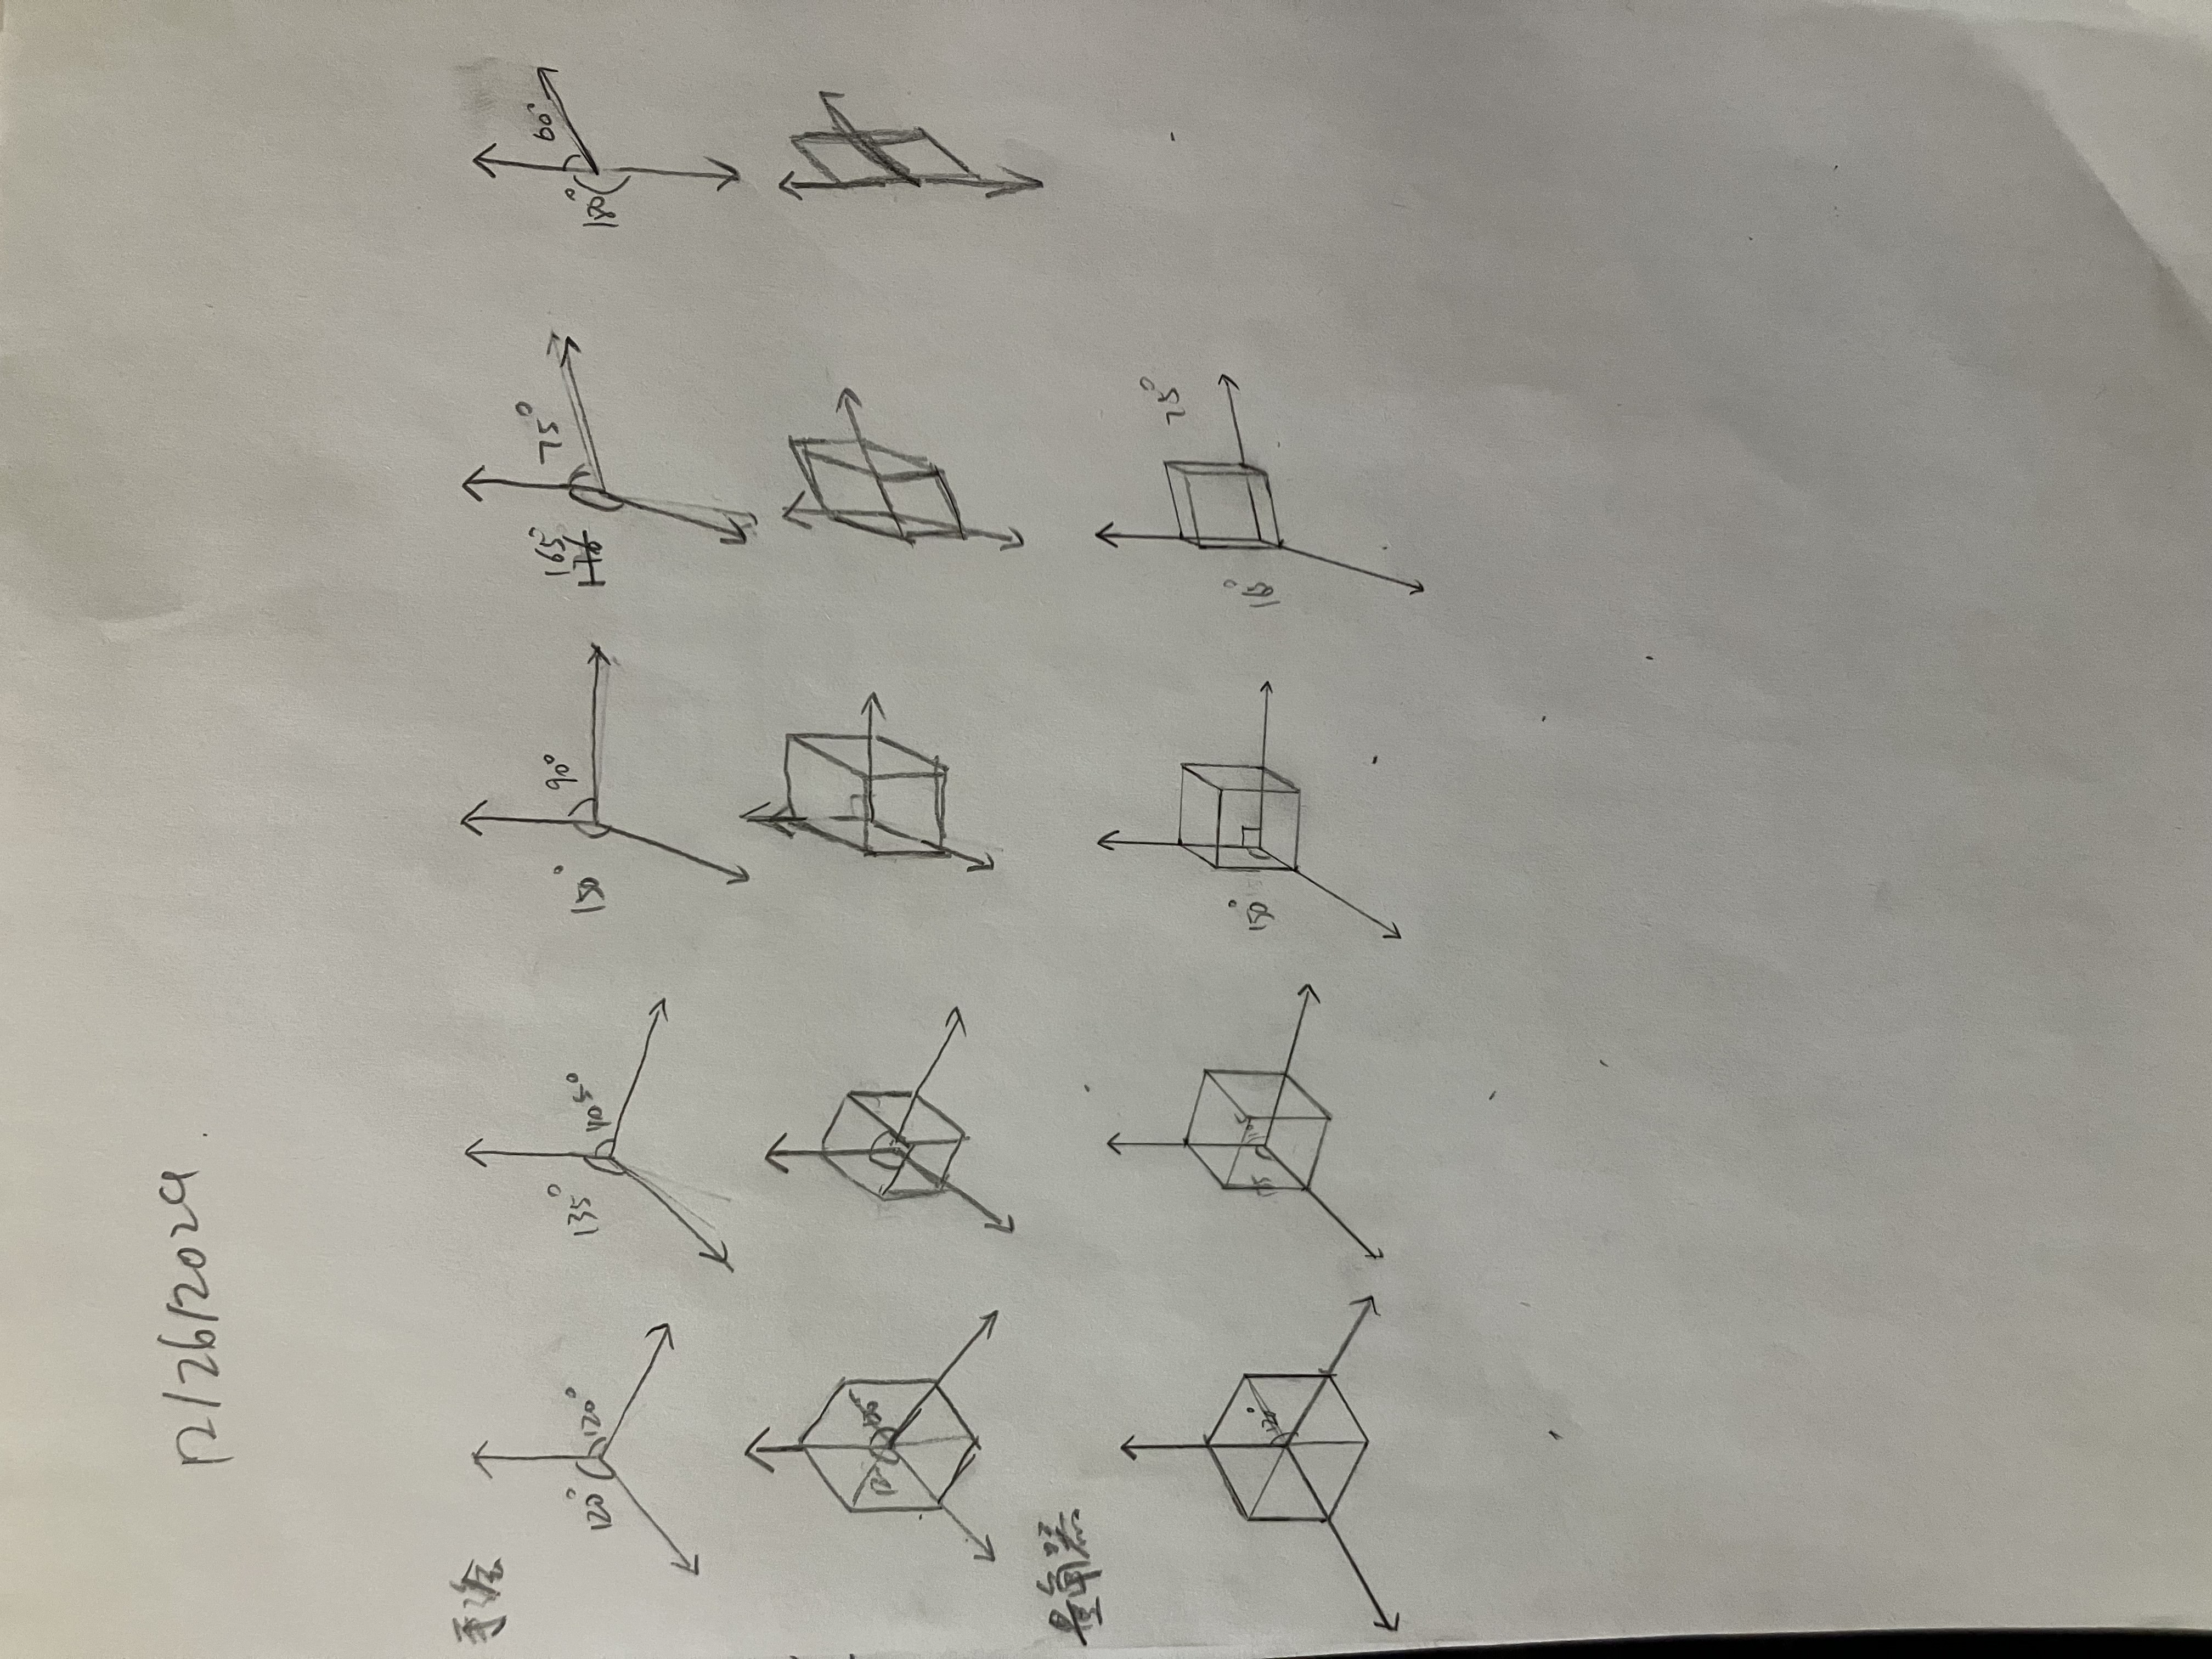 12/26/2024.
手绘
120° 120°
135° 105°
150° 90°
165° 75°
176
180° 60°
120 120°
量角器
120°
135 105
150°
165° 75°